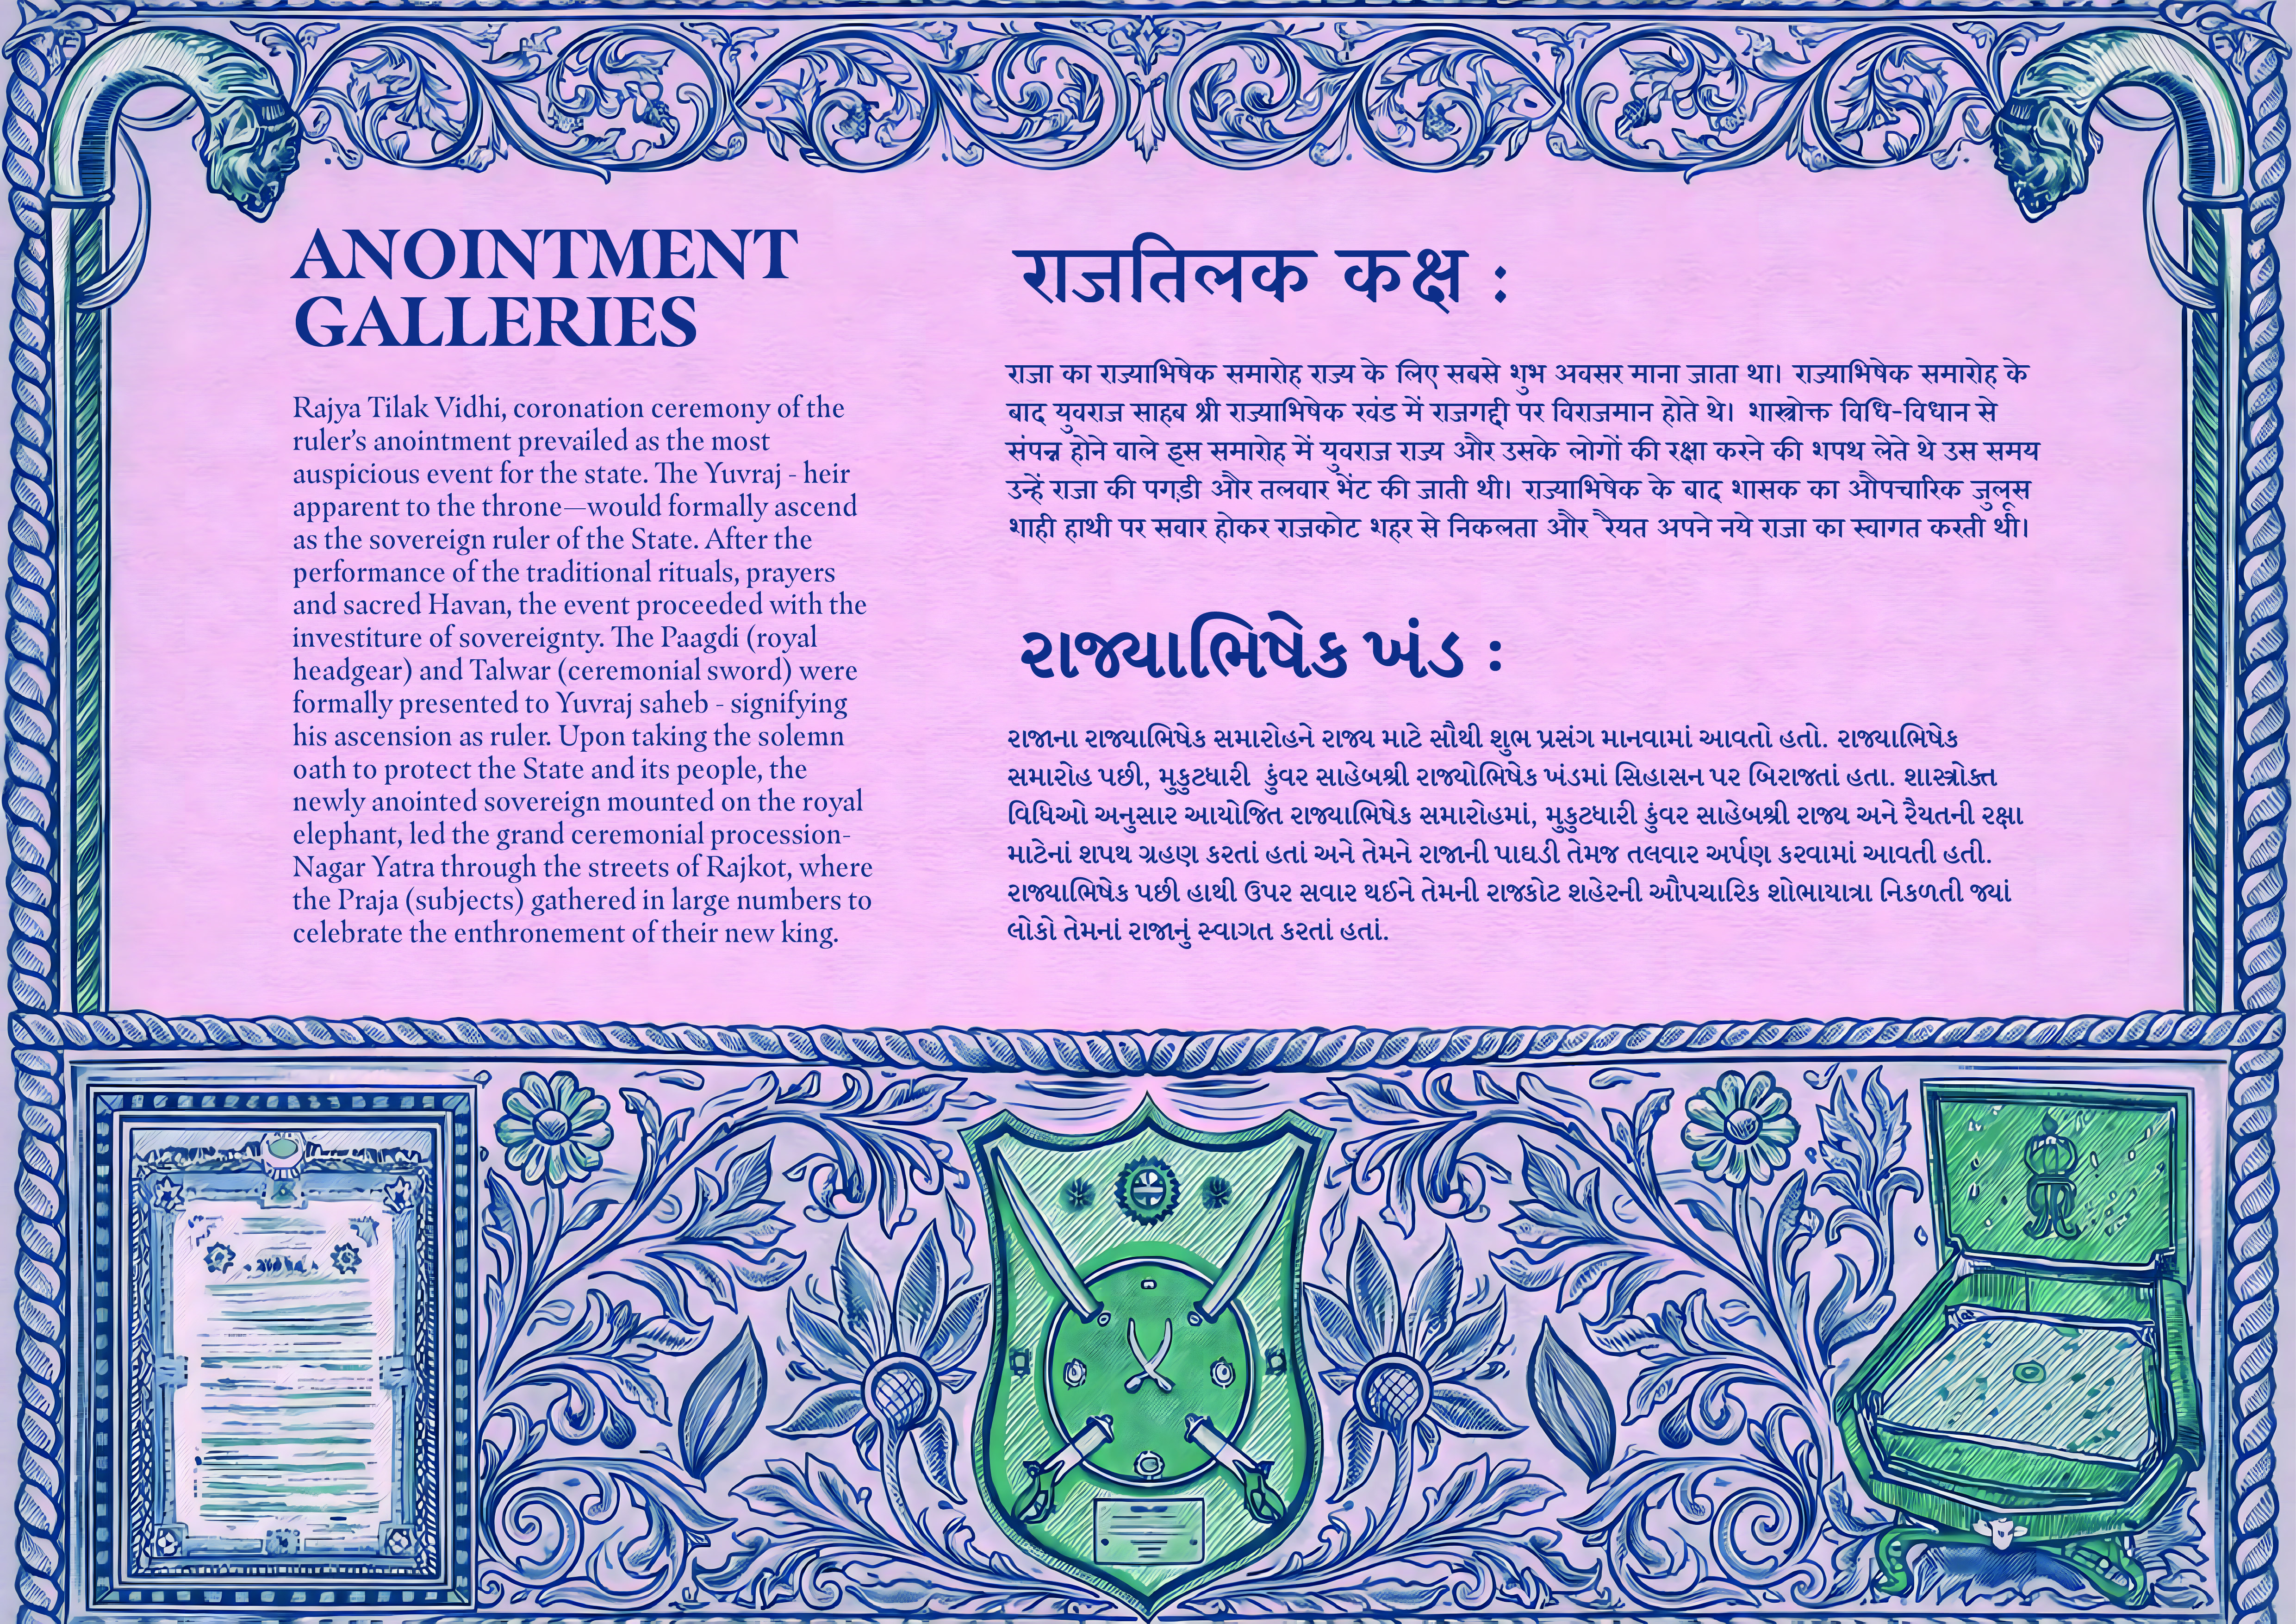 ANOINTMENT
GALLERIES
Rajya Tilak Vidhi, coronation ceremony of the
ruler's anointment prevailed as the most
auspicious event for the state. The Yuvraj - heir
apparent to the throne—would formally ascend
as the sovereign ruler of the State. After the
performance of the traditional rituals, prayers
and sacred Havan, the event proceeded with the
investiture of sovereignty. The Paagdi (royal
headgear) and Talwar (ceremonial sword) were
formally presented to Yuvraj saheb - signifying
his ascension as ruler. Upon taking the solemn
oath to protect the State and its people, the
newly anointed sovereign mounted on the royal
elephant, led the grand ceremonial procession-
Nagar Yatra through the streets of Rajkot, where
the Praja (subjects) gathered in large numbers to
celebrate the enthronement of their new king.
राजतिलक कक्ष :
राजा का राज्याभिषेक समारोह राज्य के लिए सबसे शुभ अवसर माना जाता था। राज्याभिषेक समारोह के
बाद युवराज साहब श्री राज्याभिषेक खंड में राजगद्दी पर विराजमान होते थे। शास्त्रोक्त विधि-विधान से
संपन्न होने वाले इस समारोह में युवराज राज्य और उसके लोगों की रक्षा करने की शपथ लेते थे उस समय
उन्हें राजा की पगड़ी और तलवार भेंट की जाती थी। राज्याभिषेक के बाद शासक का औपचारिक जुलूस
शाही हाथी पर सवार होकर राजकोट शहर से निकलता और रैयत अपने नये राजा का स्वागत करती थी।
રાજ્યાભિષેક ખંડ :
રાજાના રાજ્યાભિષેક સમારોહને રાજ્ય માટે સૌથી શુભ પ્રસંગ માનવામાં આવતો હતો. રાજ્યાભિષેક
સમારોહ પછી, મુકુટધારી કુંવર સાહેબશ્રી રાજ્યોભિષેક ખંડમાં સિહાસન પર બિરાજતાં હતા. શાસ્ત્રોક્ત
વિધિઓ અનુસાર આયોજિત રાજ્યાભિષેક સમારોહમાં, મુકુટધારી કુંવર સાહેબશ્રી રાજ્ય અને રૈયતની રક્ષા
માટેનાં શપથ ગ્રહણ કરતાં હતાં અને તેમને રાજાની પાઘડી તેમજ તલવાર અર્પણ કરવામાં આવતી હતી.
રાજ્યાભિષેક પછી હાથી ઉપર સવાર થઈને તેમની રાજકોટ શહેરની ઔપચારિક શોભાયાત્રા નિકળતી જ્યાં
લોકો તેમનાં રાજાનું સ્વાગત કરતાં હતાં.